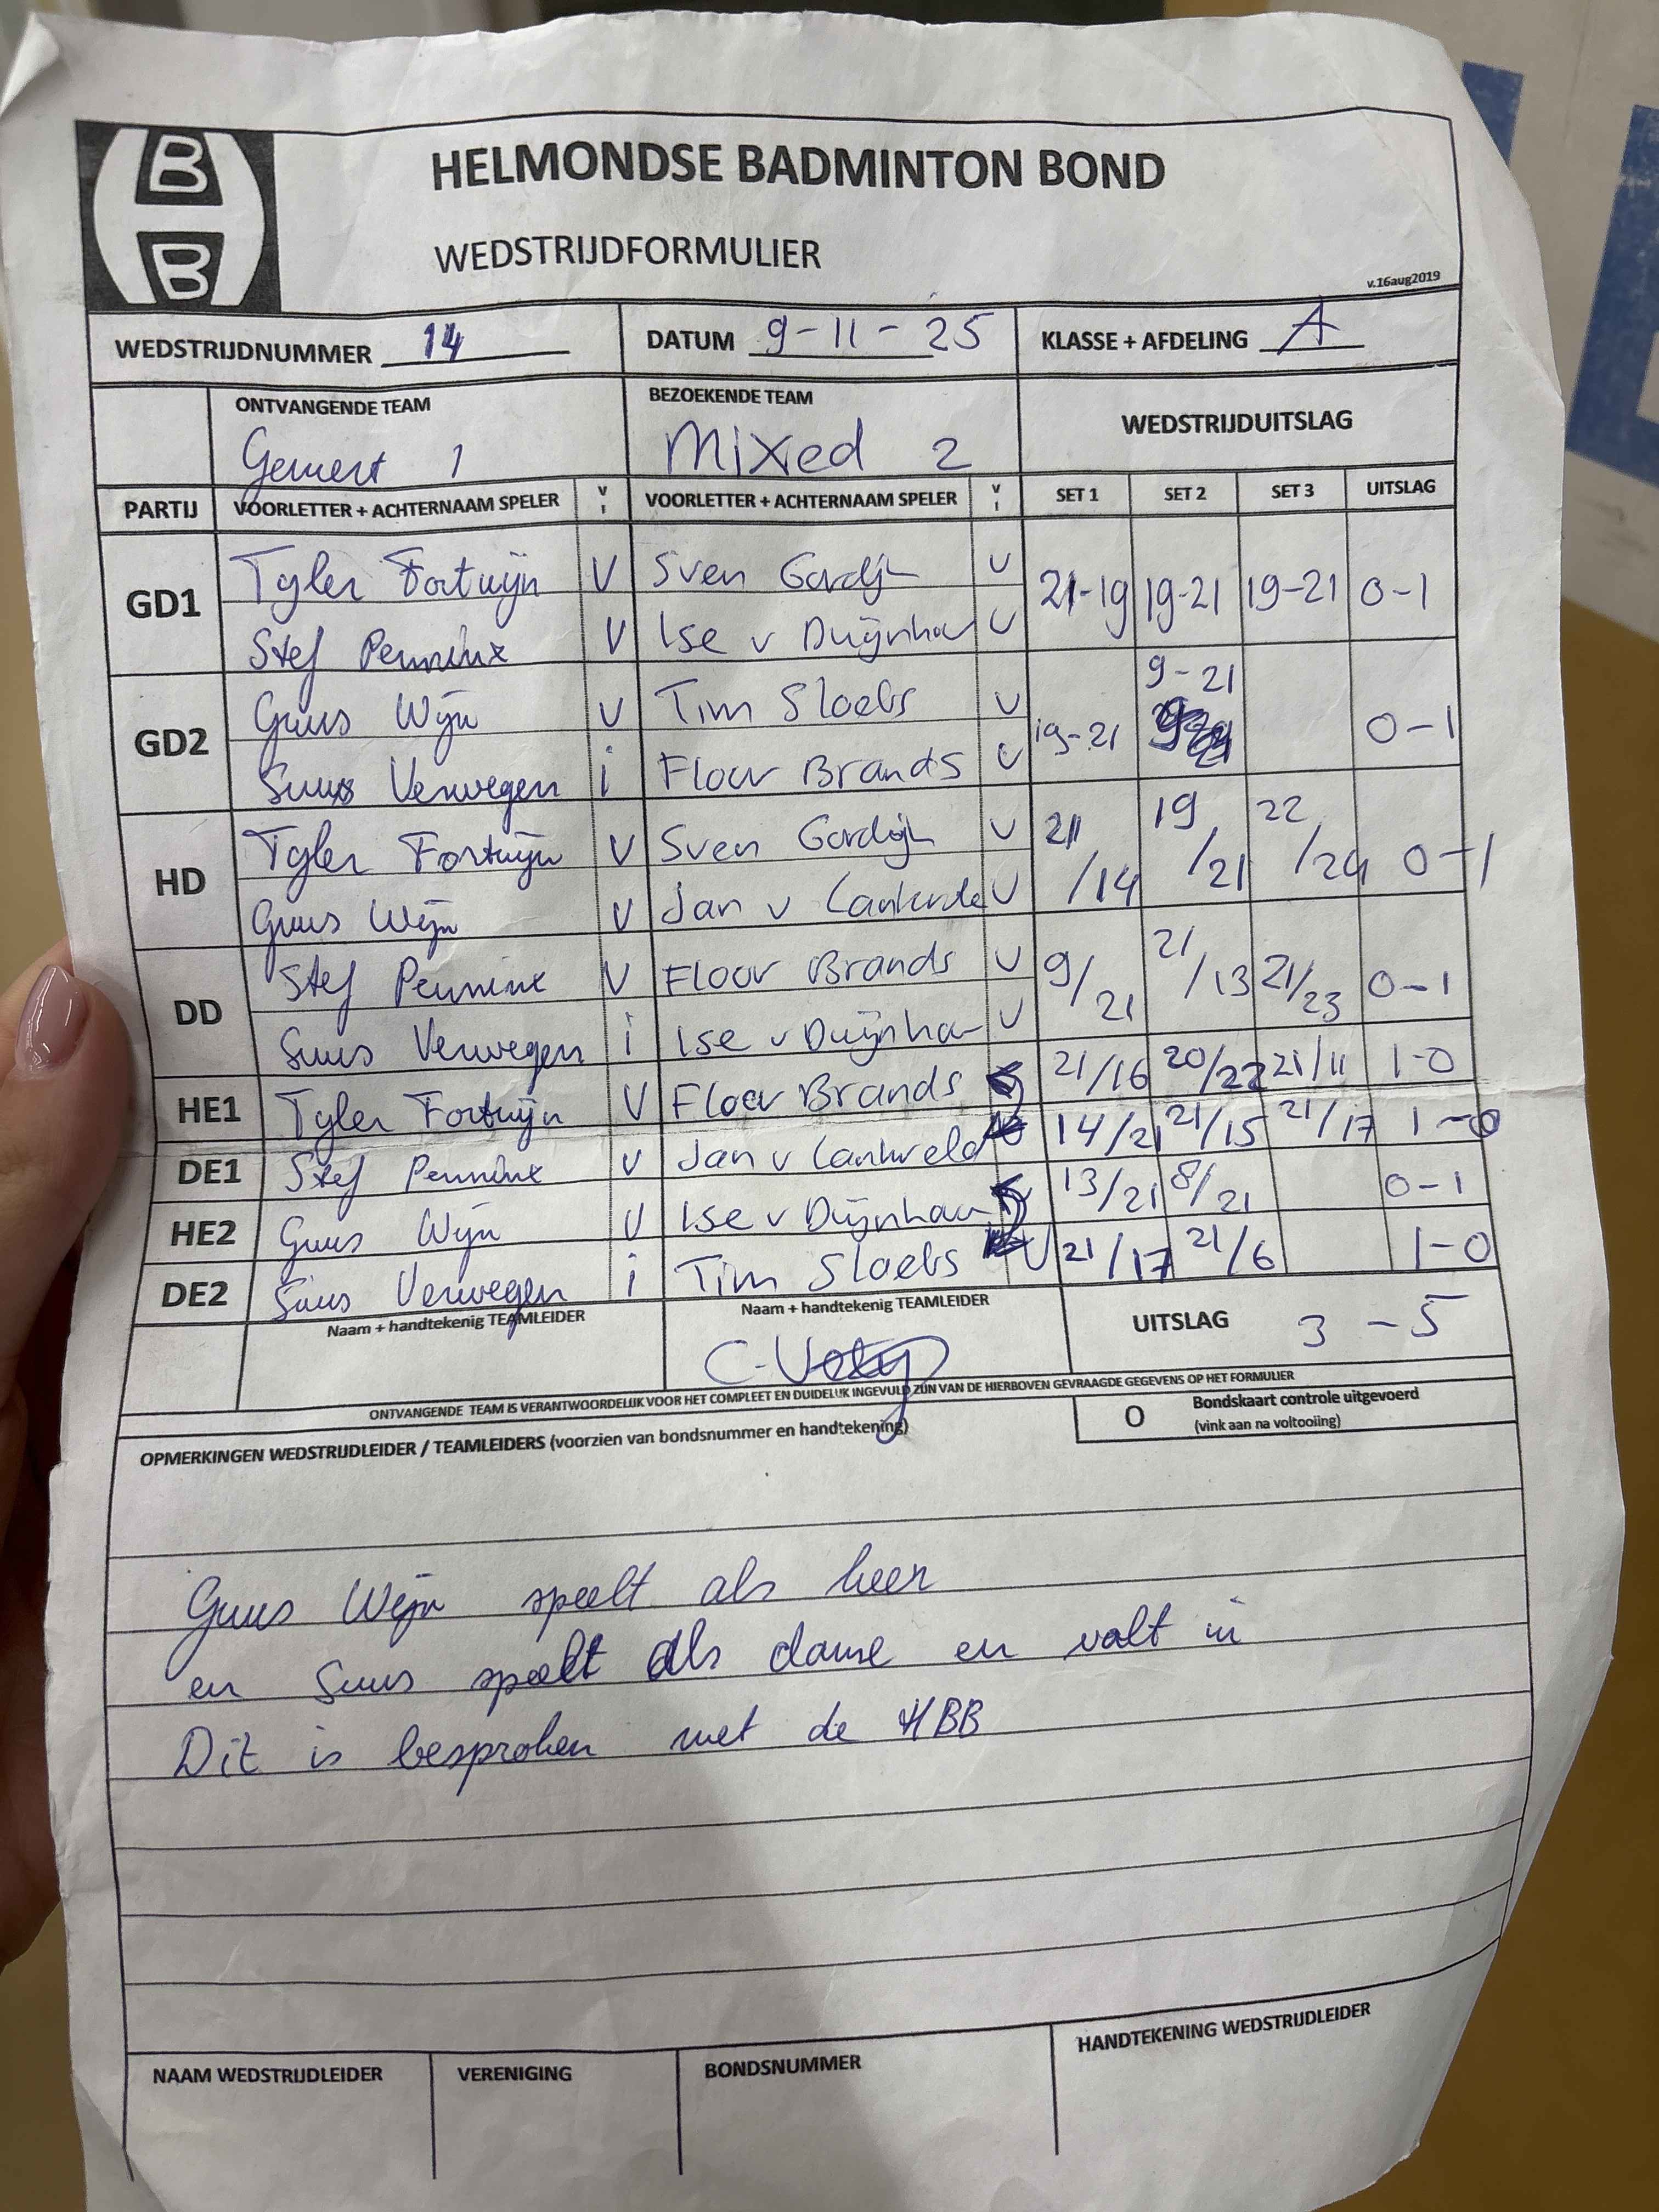 B
B
HELMONDSE BADMINTON BOND
WEDSTRIJDFORMULIER
v.16aug2019
WEDSTRIJDNUMMER 14 DATUM 9-11-25 KLASSE + AFDELING A
ONTVANGENDE TEAM BEZOEKENDE TEAM WEDSTRIJDUITSLAG
Gemert 1 Mixed 2
PARTIJ VOORLETTER + ACHTERNAAM SPELER V I VOORLETTER + ACHTERNAAM SPELER V I SET 1 SET 2 SET 3 UITSLAG
GD1 Tyler Fortuijn V Sven Gordijn V 21-19 19-21 19-21 0-1
Stef Penninx V Ise v Duijnhov V
GD2 Guus Wijn V Tim Sloebs V 19-21 9-21 0-1
Suus Verwegen i Floor Brands V
HD Tyler Fortuijn V Sven Gordijn V 21/14 19/21 22/24 0-1
Guus Wijn V Jan v V
DD Stef Penninx V Floor Brands V 9/21 21/13 21/23 0-1
Suus Verwegen i Ise v Duijnhov V
HE1 Tyler Fortuijn V Floor Brands 21/16 20/22 21/11 1-0
DE1 Stef Penninx V Jan v 14/21 21/15 21/17 1-0
HE2 Guus Wijn V Ise v Duijnhov 13/21 8/21 0-1
DE2 Suus Verwegen i Tim Sloebs V 21/17 21/6 1-0
Naam + handtekenig TEAMLEIDER Naam + handtekenig TEAMLEIDER UITSLAG 3-5
ONTVANGENDE TEAM IS VERANTWOORDELIJK VOOR HET COMPLEET EN DUIDELIJK INGEVULD ZIJN VAN DE HIERBOVEN GEVRAAGDE GEGEVENS OP HET FORMULIER
OPMERKINGEN WEDSTRIJDLEIDER / TEAMLEIDERS (voorzien van bondsnummer en handtekening)
O Bondskaart controle uitgevoerd
(vink aan na voltooiing)
Guus Wijn speelt als heer
en Suus speelt als dame en valt in
Dit is besproken met de HBB
NAAM WEDSTRIJDLEIDER VERENIGING BONDSNUMMER HANDTEKENING WEDSTRIJDLEIDER